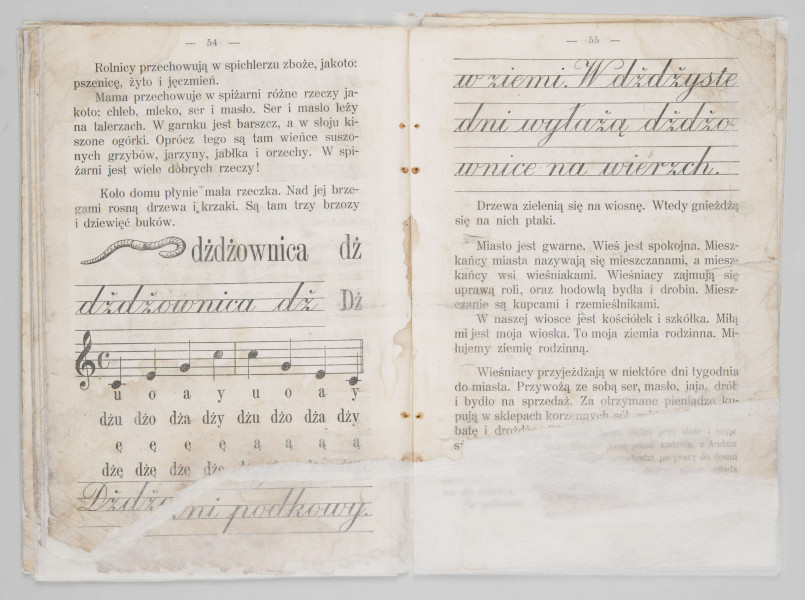 — 54 —
Rolnicy przechowują w spichlerzu zboże, jakoto:
pszenicę, żyto i jęczmień.
Mama przechowuje w spiżarni różne rzeczy ja-
koto: chleb, mleko, ser i masło. Ser i masło leży
na talerzach. W garnku jest barszcz, a w słoju ki-
szone ogórki. Oprócz tego są tam wieńce suszo-
nych grzybów, jarzyny, jabłka i orzechy. W spi-
żarni jest wiele dobrych rzeczy!
Koło domu płynie mała rzeczka. Nad jej brze-
gami rosną drzewa i krzaki. Są tam trzy brzozy
i dziewięć buków.
dżdżownica dż
dżdżownica dż Dż
u o a y u o a y
dżu dżo dża dży dżu dżo dża dży
ę ę ę ę ą ą ą ą
dżę dżę dżę
podkowy.
— 55 —
w ziemi. W dżdżyste
dni wyłażą dżdżo-
wnice na wierzch.
Drzewa zielenią się na wiosnę. Wtedy gnieżdżą
się na nich ptaki.
Miasto jest gwarne. Wieś jest spokojna. Miesz-
kańcy miasta nazywają się mieszczanami, a miesz-
kańcy wsi wieśniakami. Wieśniacy zajmują się
uprawą roli, oraz hodowlą bydła i drobiu. Miesz-
czanie są kupcami i rzemieślnikami.
W naszej wiosce jest kościółek i szkółka. Miłą
mi jest moja wioska. To moja ziemia rodzinna. Mi-
łujemy ziemię rodzinną.
Wieśniacy przyjeżdżają w niektóre dni tygodnia
do miasta. Przywożą ze sobą ser, masło, jaja, drób
i bydło na sprzedaż. Za otrzymane pieniądze ku-
pują w sklepach korzennych sól
batę i
po pracy do domu